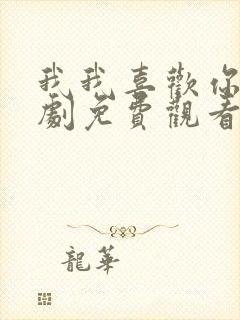 我我喜歡你
劇免費觀看
龍華